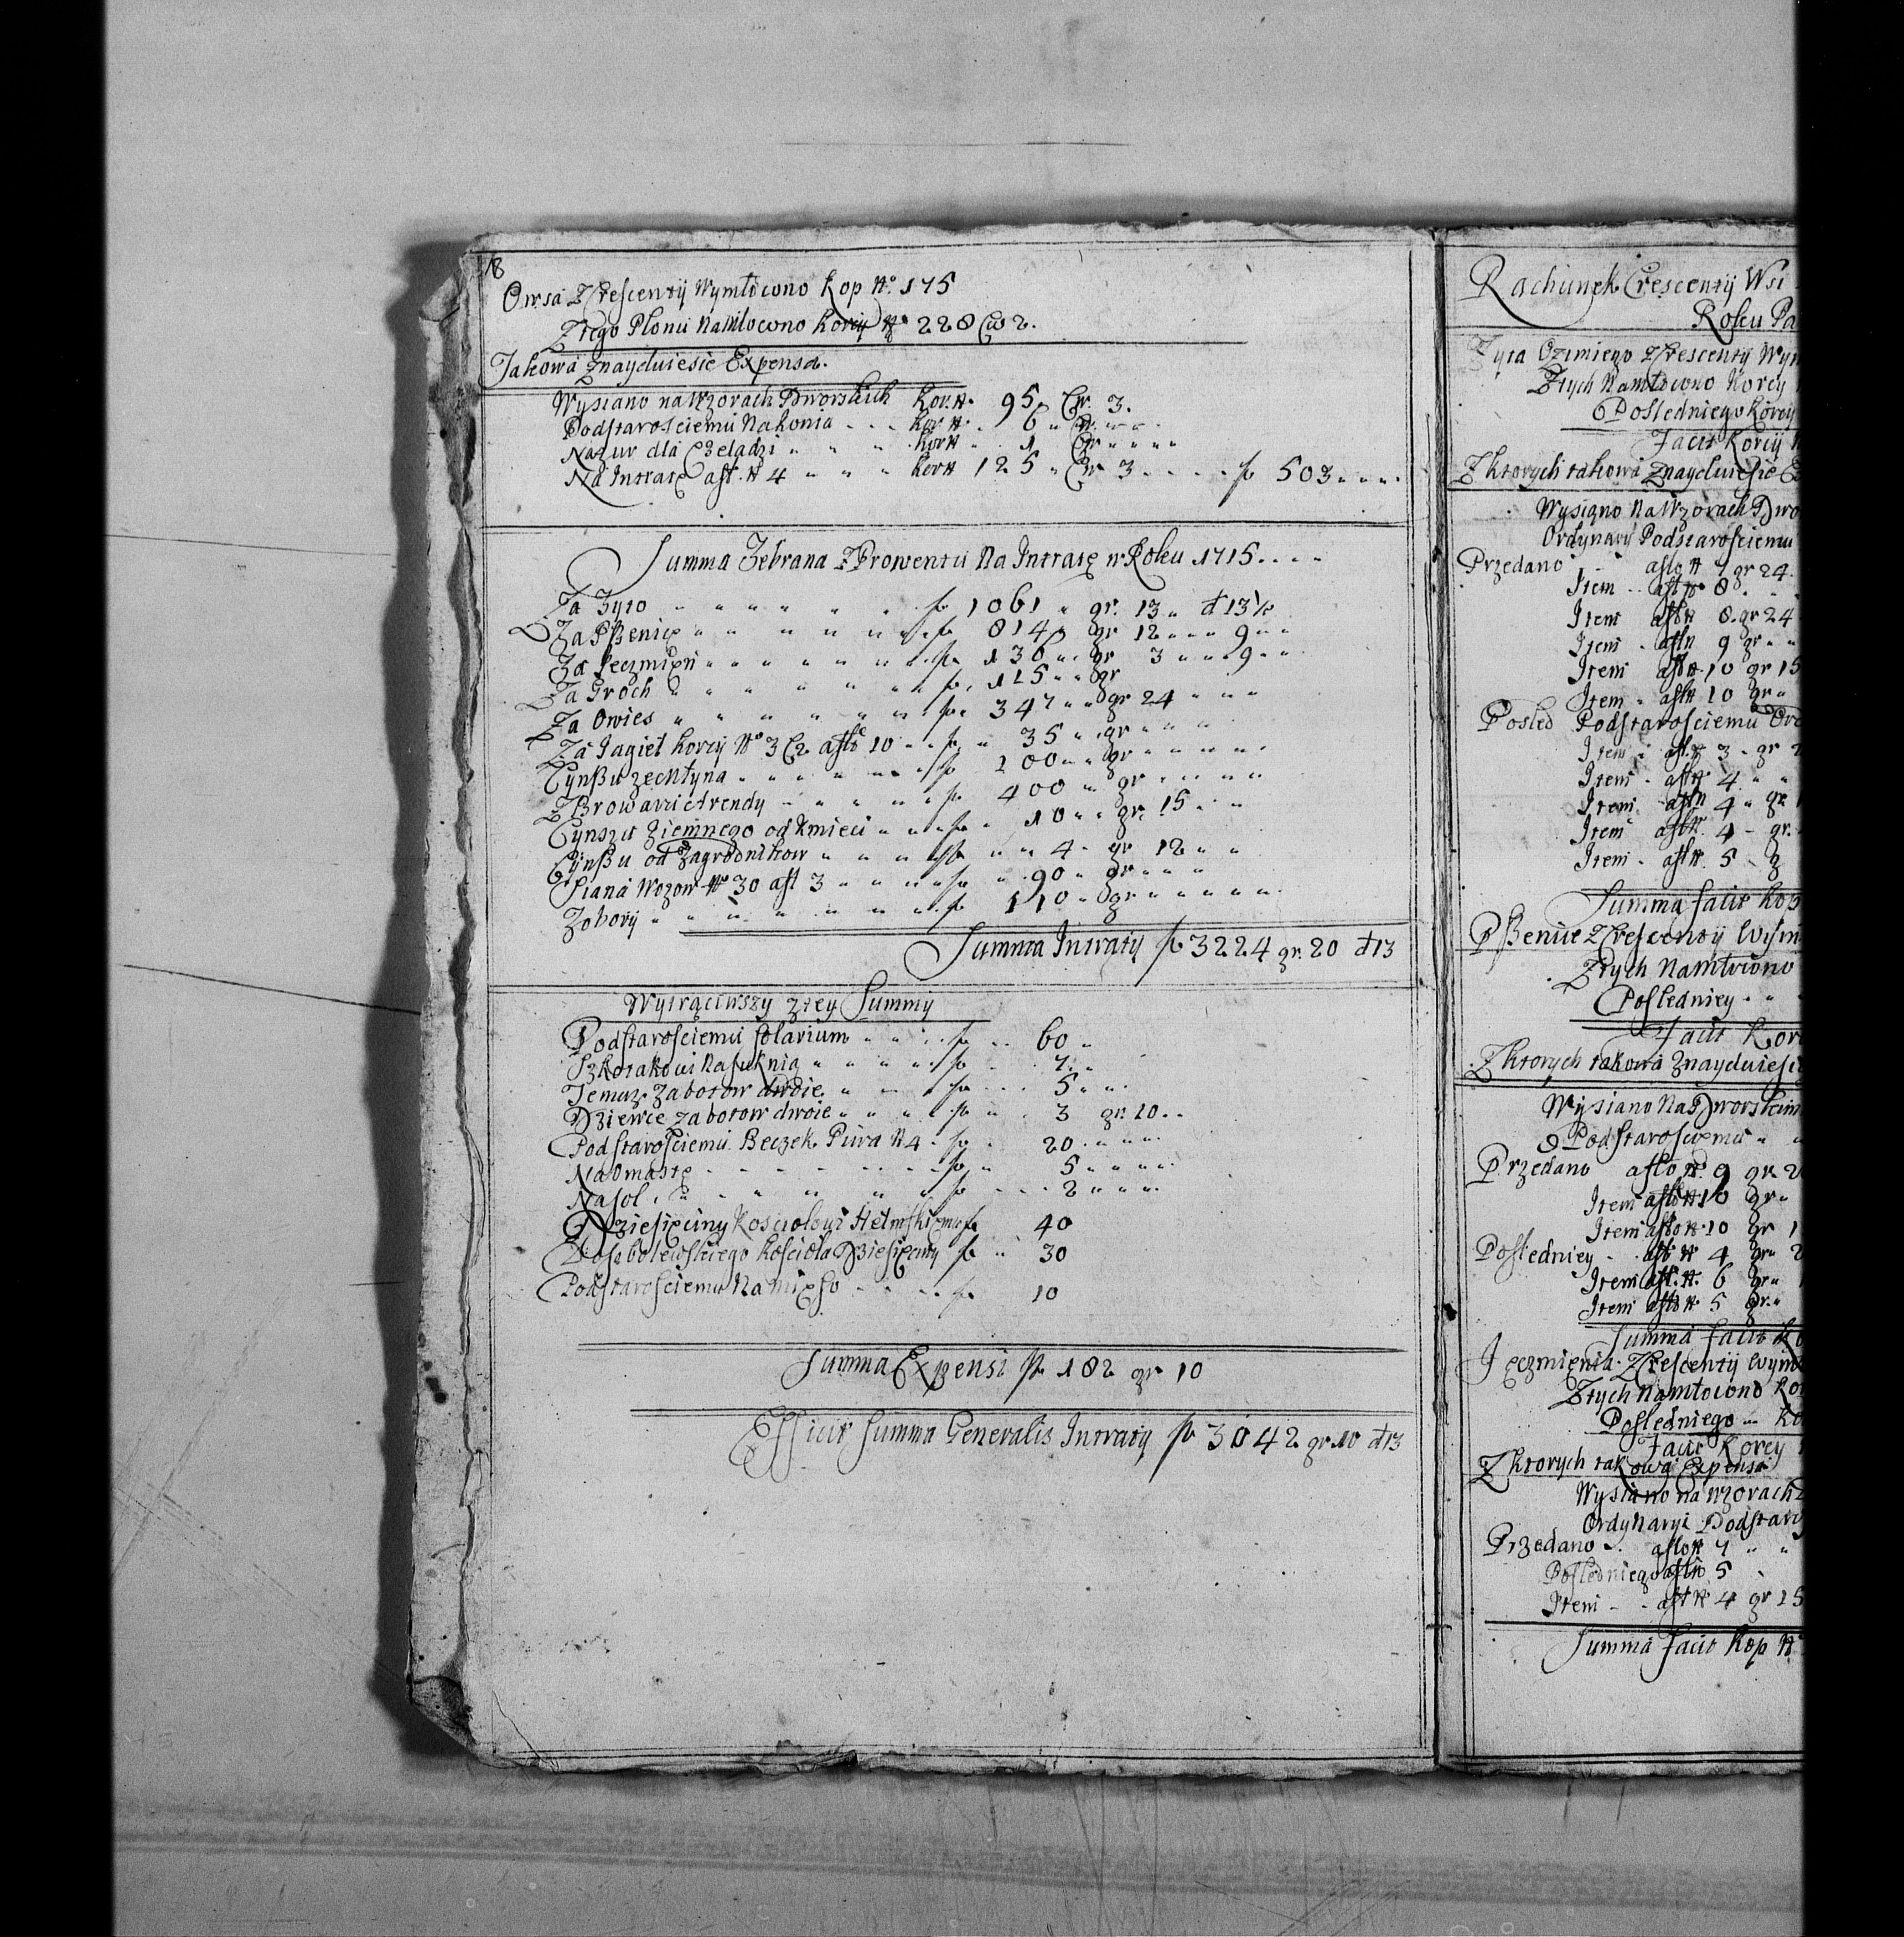 18
Owsa z Crescentÿ Wymłocono Kop No. 175
Z tego Plonu Namłocono Korcÿ No 228 Cw 2.
Takowa znayduiesie Expensa.
Wysiano na Wzorach Dworskich Kor. N. 95. Cw. 3.
Podstarosciemu Na konia Kor N. 6 Cw.
Na zur dla Czeladzi Kor N 1 Cw
Na Intratę ast. N 4 Kor N 125 Cw 3 fl 503
Summa Zebrana z Prowentu Na Intratę w Roku 1715
Za Zyto fl 1061 gr. 13 d 13½
Za Pszenicę fl 814 gr 12 9
Za Jęczmięn fl. 136 gr 3 9
Za Groch fl. 115 gr
Za Owies fl. 347 gr 24
Za Jagieł Korcÿ No 3 C2 asto 10 fl 35 gr
Cynszu fl 100 gr
Z Browaru Arendy fl. 400 gr
Cynszu Ziemnego od Kmieci fl 10 gr. 15
Cÿnszu od Zagrodnikow fl 4 gr 12
Siana Wozow No 30 ast 3 fl 90 gr
Z obory fl 110 gr
Summa Intratÿ fl 3224 gr. 20 d 13
Wytrąciwszy z tey Summy
Podstarosciemu solarium fl 60
Szkotakowi Na suknią fl 7
Temuz za botow dwoie fl 5
Dziewce za botow dwoie fl 3 gr. 10
Podstarosciemu Beczek Piwa N 4 fl 20
Na Omastę fl 5
Na sol fl 2
Dziesięciny Kosciołowi fl 40
Kościoła Dziesięciny fl 30
Podstarosciemu Na Mięso fl 10
Summa Expensi fl 182 gr 10
Efficit Summa Generalis Intratÿ fl 3042 gr 10 d 13
Rachunek Crescentÿ Wsi
Roku Pa
Zyta Ozimiego z Crescentÿ Wym
Z tych Namłocono Korcy
Posledniego Korcy
Facit Korcÿ
Z ktorych takowa Znayduiesie E
Wysiano Na Wzorach Dwo
Ordynarÿ Podstarosciemu
Przedano asto N 7 gr 24
Item ast N 8
Item asto N 8. gr 24
Item asto N 9 gr
Item asto N 10 gr 15
Item asto N 10 gr
Posled Podstarosciemu Ord
Item ast N 3 gr 2
Item ast N 4
Item ast N 4 gr 1
Item ast N. 4 gr.
Item ast N. 5 g
Summa facit Kop
Pszenice z Crescentÿ Wym
Z tych Namłocono
Posledniey
Facit Kor
Z ktorych takowa Znayduiesie
Wÿsiano Na Dworskim
Podstarosciemu
Przedano asto N 9 gr. 2
Item asto N 10 gr
Item asto N 10 gr 1
Posledniey asto N 4 gr 2
Item ast. N. 6 gr 1
Item asto N 5 gr.
Summa facit K
Jęczmięnia z Crescentÿ Wym
Z tych Namłocono Ko
Posledniego Ko
Facit Korcy
Z ktorych takowa Expensa
Wysiano na Wzorach
Ordynaryi Podstaro
Przedano asto N 7
Posledniego asto N 5
Item ast N 4 gr 15
Summa facit Kop N.